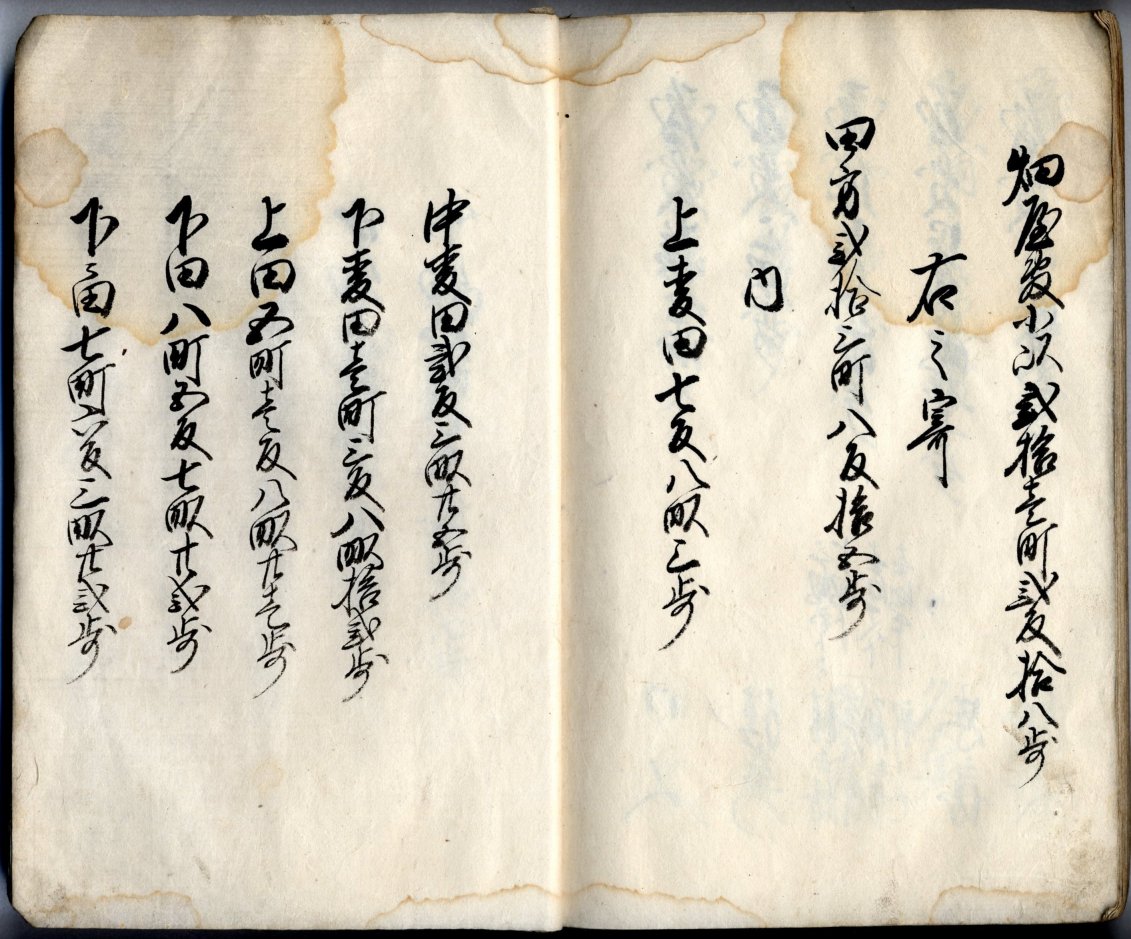 畑屋敷小以弐拾壱町弐反拾八歩
右之寄
田方弐拾三町八反拾五歩
内
上麦田七反八畝三歩
中麦田弐反三畝廿五歩
下麦田壱町三反八畝拾弐歩
上田五町壱反八畝廿壱歩
下田八町五反七畝廿弐歩
下々田七町六反三畝廿弐歩